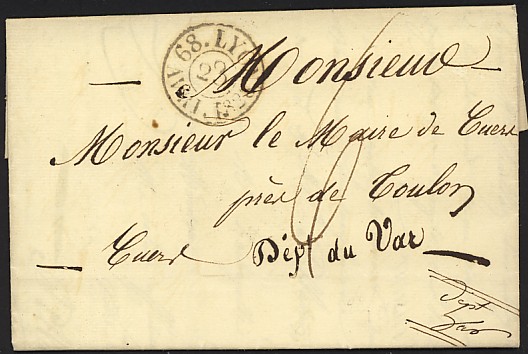 68. LYON
— Monsieur —
Monsieur le Maire de Cuers
près de Toulon
— Cuers Dépt du Var —
Dept
Var
6